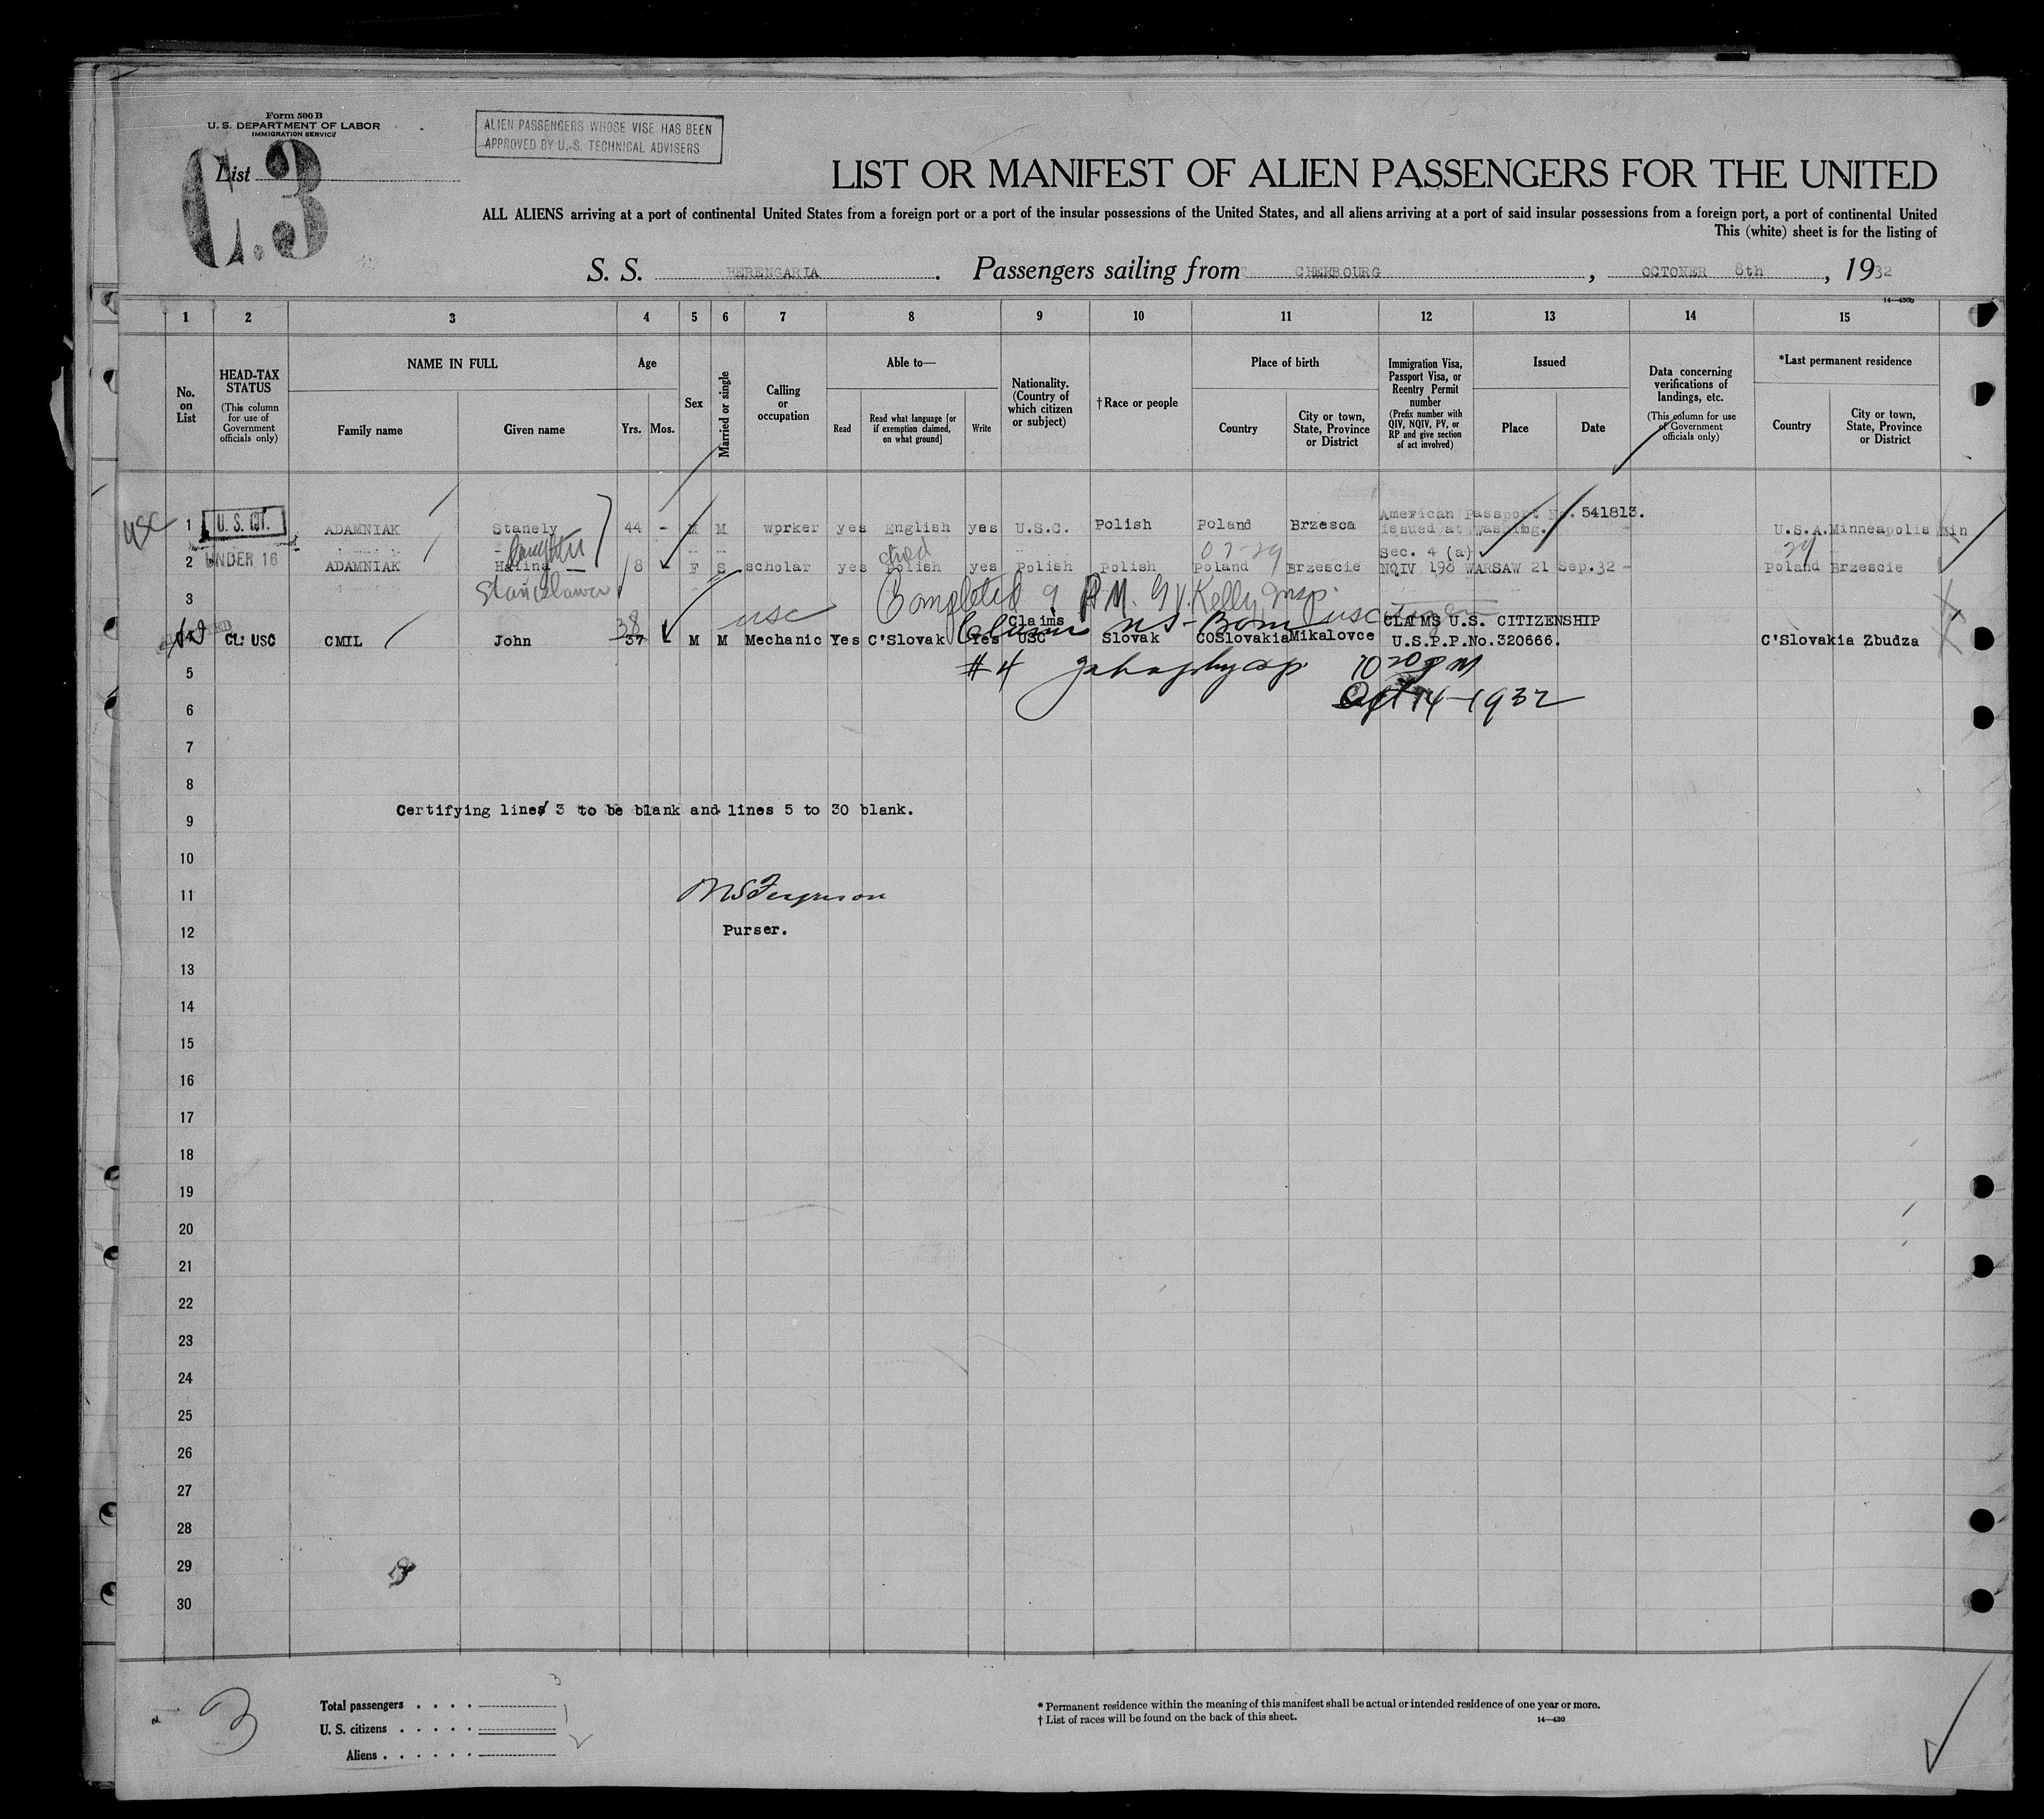 Form 500 B
U. S. DEPARTMENT OF LABOR
IMMIGRATION SERVICE
ALIEN PASSENGERS WHOSE VISE HAS BEEN
APPROVED BY U.S. TECHNICAL ADVISERS
List
C.3
LIST OR MANIFEST OF ALIEN PASSENGERS FOR THE UNITED
ALL ALIENS arriving at a port of continental United States from a foreign port or a port of the insular possessions of the United States, and all aliens arriving at a port of said insular possessions from a foreign port, a port of continental United
This (white) sheet is for the listing of
S. S. BERENGARIA. Passengers sailing from CHERBOURG, OCTONER 8th, 1932
14—430b
1 2 3 4 5 6 7 8 9 10 11 12 13 14 15
No. on List
HEAD-TAX STATUS (This column for use of Government officials only)
NAME IN FULL
Family name
Given name
Age
Yrs. Mos.
Sex
Married or single
Calling or occupation
Able to—
Read
Read what language [or if exemption claimed, on what ground]
Write
Nationality. (Country of which citizen or subject)
†Race or people
Place of birth
Country
City or town, State, Province or District
Immigration Visa, Passport Visa, or Reentry Permit number (Prefix number with QIV, NQIV, PV, or RP and give section of act involved)
Issued
Place
Date
Data concerning verifications of landings, etc. (This column for use of Government officials only)
*Last permanent residence
Country
City or town, State, Province or District
USC 1 U. S. CIT. ADAMNIAK Stanely 44 - M M worker yes English yes U.S.C. Polish Poland Brzesca American Passport No. 541813. issued at Washing. - U.S.A. Minneapolis Min
daughter
Sec. 4 (a)
2 UNDER 16 ADAMNIAK Halina 8 F S scholar yes Polish yes Polish Polish Poland Brzescie NQIV 198 WARSAW 21 Sep.32 - Poland Brzescie
3 Stanislawa Completed 9 P.M. G V. Kelly Insp.
usc Claims US - Born usc
38
4 CL: USC CMIL John 37 M M Mechanic Yes C'Slovak Yes Claims USC Slovak COSlovakia Mikalovce CLAIMS U.S. CITIZENSHIP U.S.P.P.No.320666. C'Slovakia Zbudza
5 #4 10 20 PM
6 Oct 14-1932
7
8
Certifying lines 3 to be blank and lines 5 to 30 blank.
9
10
11 Ferguson
12 Purser.
13
14
15
16
17
18
19
20
21
22
23
24
25
26
27
28
29
30
3
Total passengers . . . . 3
U. S. citizens . . . . . 1
Aliens . . . . . . 2
* Permanent residence within the meaning of this manifest shall be actual or intended residence of one year or more.
† List of races will be found on the back of this sheet.
14—430